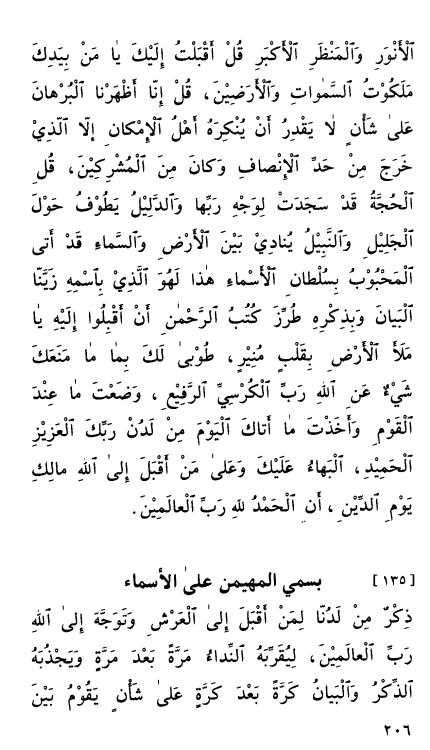 ٱلْأَنْوَرِ وَٱلْمَنْظَرِ ٱلْأَكْبَرِ قُلْ أَقْبَلْتُ إِلَيْكَ يٰا مَنْ بِيَدِكَ
مَلَكُوْتُ ٱلسَّمٰواتِ وَٱلْأَرَضِيْنَ، قُلْ إِنّٰا أَظْهَرْنا ٱلْبُرْهانَ
عَلىٰ شَأْنٍ لٰا يَقْدِرُ أَنْ يُنْكِرَهُ أَهْلُ ٱلْإِمْكانِ إِلّا ٱلَّذِيْ
خَرَجَ مِنْ حَدِّ ٱلْإِنْصافِ وَكانَ مِنَ ٱلْمُشْرِكِيْنَ، قُلِ
ٱلْحُجَّةُ قَدْ سَجَدَتْ لِوَجْهِ رَبِّها وَٱلدَّلِيْلُ يَطُوْفُ حَوْلَ
ٱلْجَلِيْلِ وَٱلنَّبِيْلُ يُنادِيْ بَيْنَ ٱلْأَرْضِ وَٱلسَّماءِ قَدْ أَتى
ٱلْمَحْبُوْبُ بِسُلْطانِ ٱلْأَسْماءِ هٰذا لَهُوَ ٱلَّذِيْ بِٱسْمِهِ زَيَّنّا
ٱلْبَيانَ وَبِذِكْرِهِ طُرِّزَ كُتُبُ ٱلرَّحْمٰنِ أَنْ أَقْبِلُوا إِلَيْهِ يٰا
مَلَأَ ٱلْأَرْضِ بِقَلْبٍ مُنِيْرٍ، طُوْبىٰ لَكَ بِمٰا مٰا مَنَعَكَ
شَيْءٌ عَنِ ٱللهِ رَبِّ ٱلْكُرْسِيِّ ٱلرَّفِيْعِ، وَضَعْتَ مٰا عِنْدَ
ٱلْقَوْمِ وَأَخَذْتَ مٰا أَتاكَ ٱلْيَوْمَ مِنْ لَدُنْ رَبِّكَ ٱلْعَزِيْزِ
ٱلْحَمِيْدِ، ٱلْبَهاءُ عَلَيْكَ وَعَلىٰ مَنْ أَقْبَلَ إِلىٰ ٱللهِ مالِكِ
يَوْمِ ٱلدِّيْنِ، أَنِ ٱلْحَمْدُ لِلهِ رَبِّ ٱلْعالَمِيْنَ.
[١٣٥] بسمي المهيمن علىٰ الأسماء
ذِكْرٌ مِنْ لَدُنّا لِمَنْ أَقْبَلَ إِلىٰ ٱلْعَرْشِ وَتَوَجَّهَ إِلىٰ ٱللهِ
رَبِّ ٱلْعالَمِيْنَ، لِيُقَرِّبَهُ ٱلنِّداءُ مَرَّةً بَعْدَ مَرَّةٍ وَيَجْذُبَهُ
ٱلذِّكْرُ وَٱلْبَيانُ كَرَّةً بَعْدَ كَرَّةٍ عَلىٰ شَأْنٍ يَقُوْمُ بَيْنَ
٢٠٦